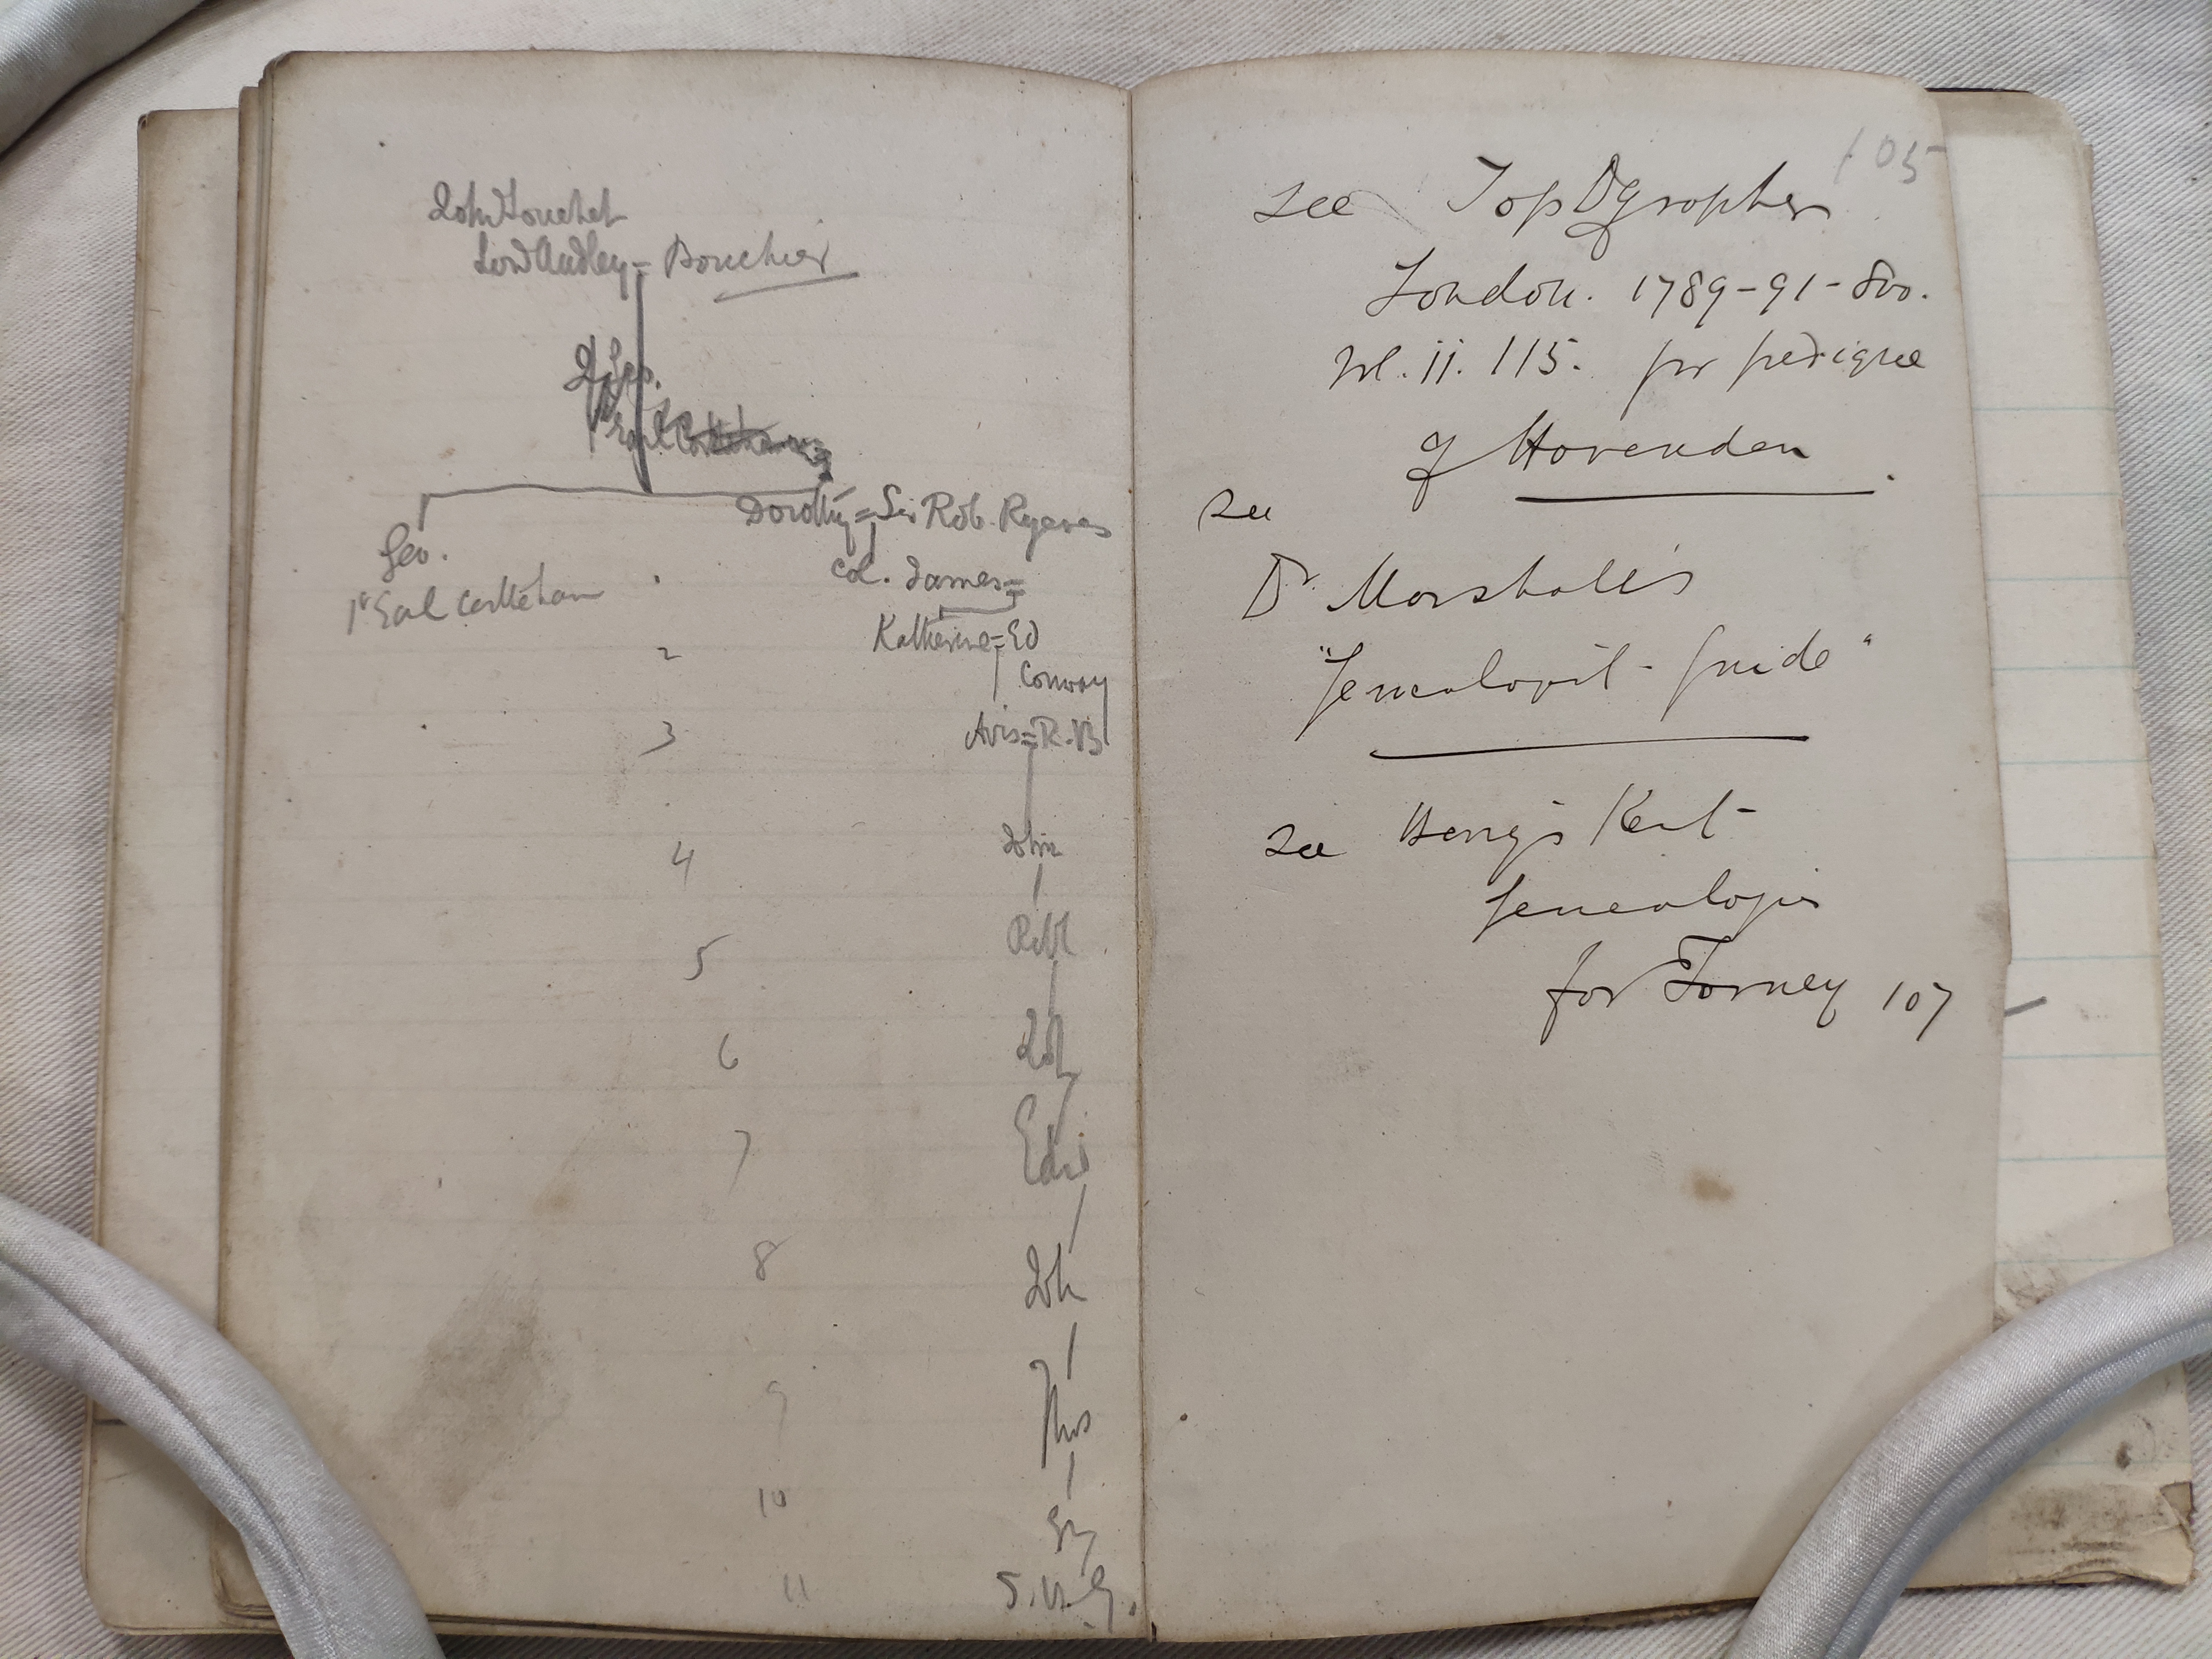 John Touchet
Lord Audley = Bouchier
Geo.
Dorothy = Sir Rob. Ryeves
Geo.
1st Earl Castleham
Col. James =
2
Katherine = Ed
Conway
3
Avis = R. V.
4
John
5
Robt
6
Joh
7
8
Joh
9
Thos
10
11
105
see Topographer
London. 1789-91-8vo.
Vol. ii. 115. for pedigree
of Hovenden.
see
Dr Marshall's
"Genealogist-Guide"
see Berry's Kent
Genealogies
for Torney 107